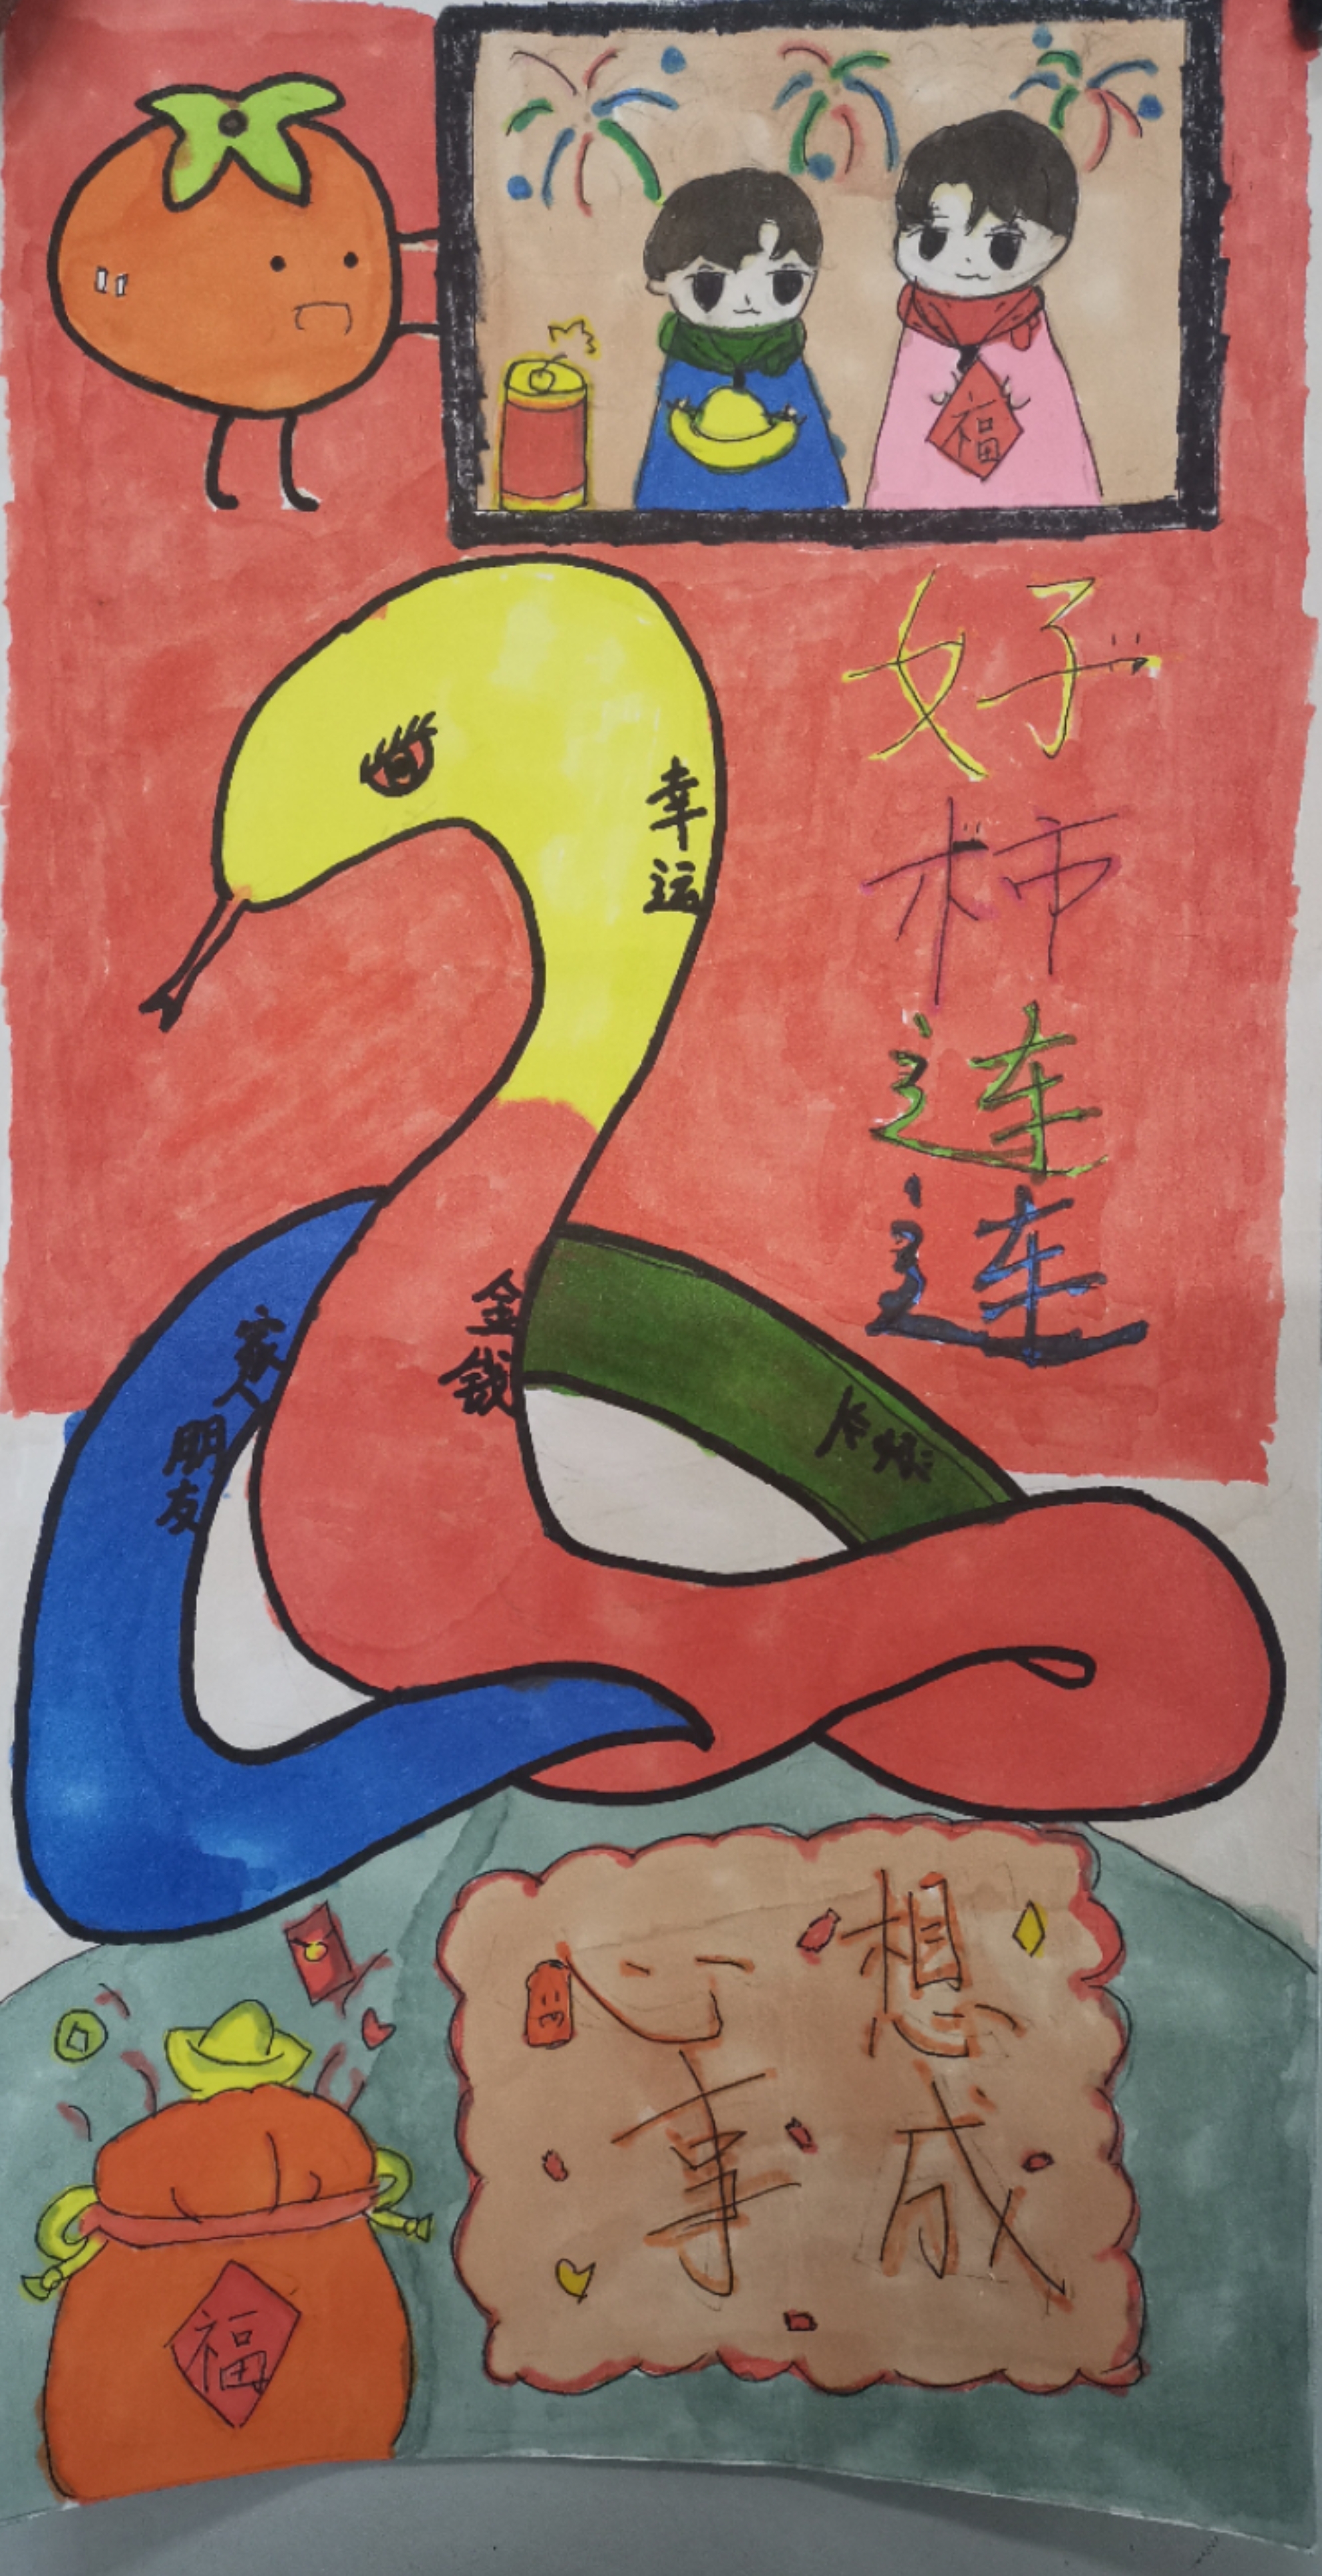 福
好
柿
连
连
幸
运
金
钱
家
人
朋
友
心想
事成
福